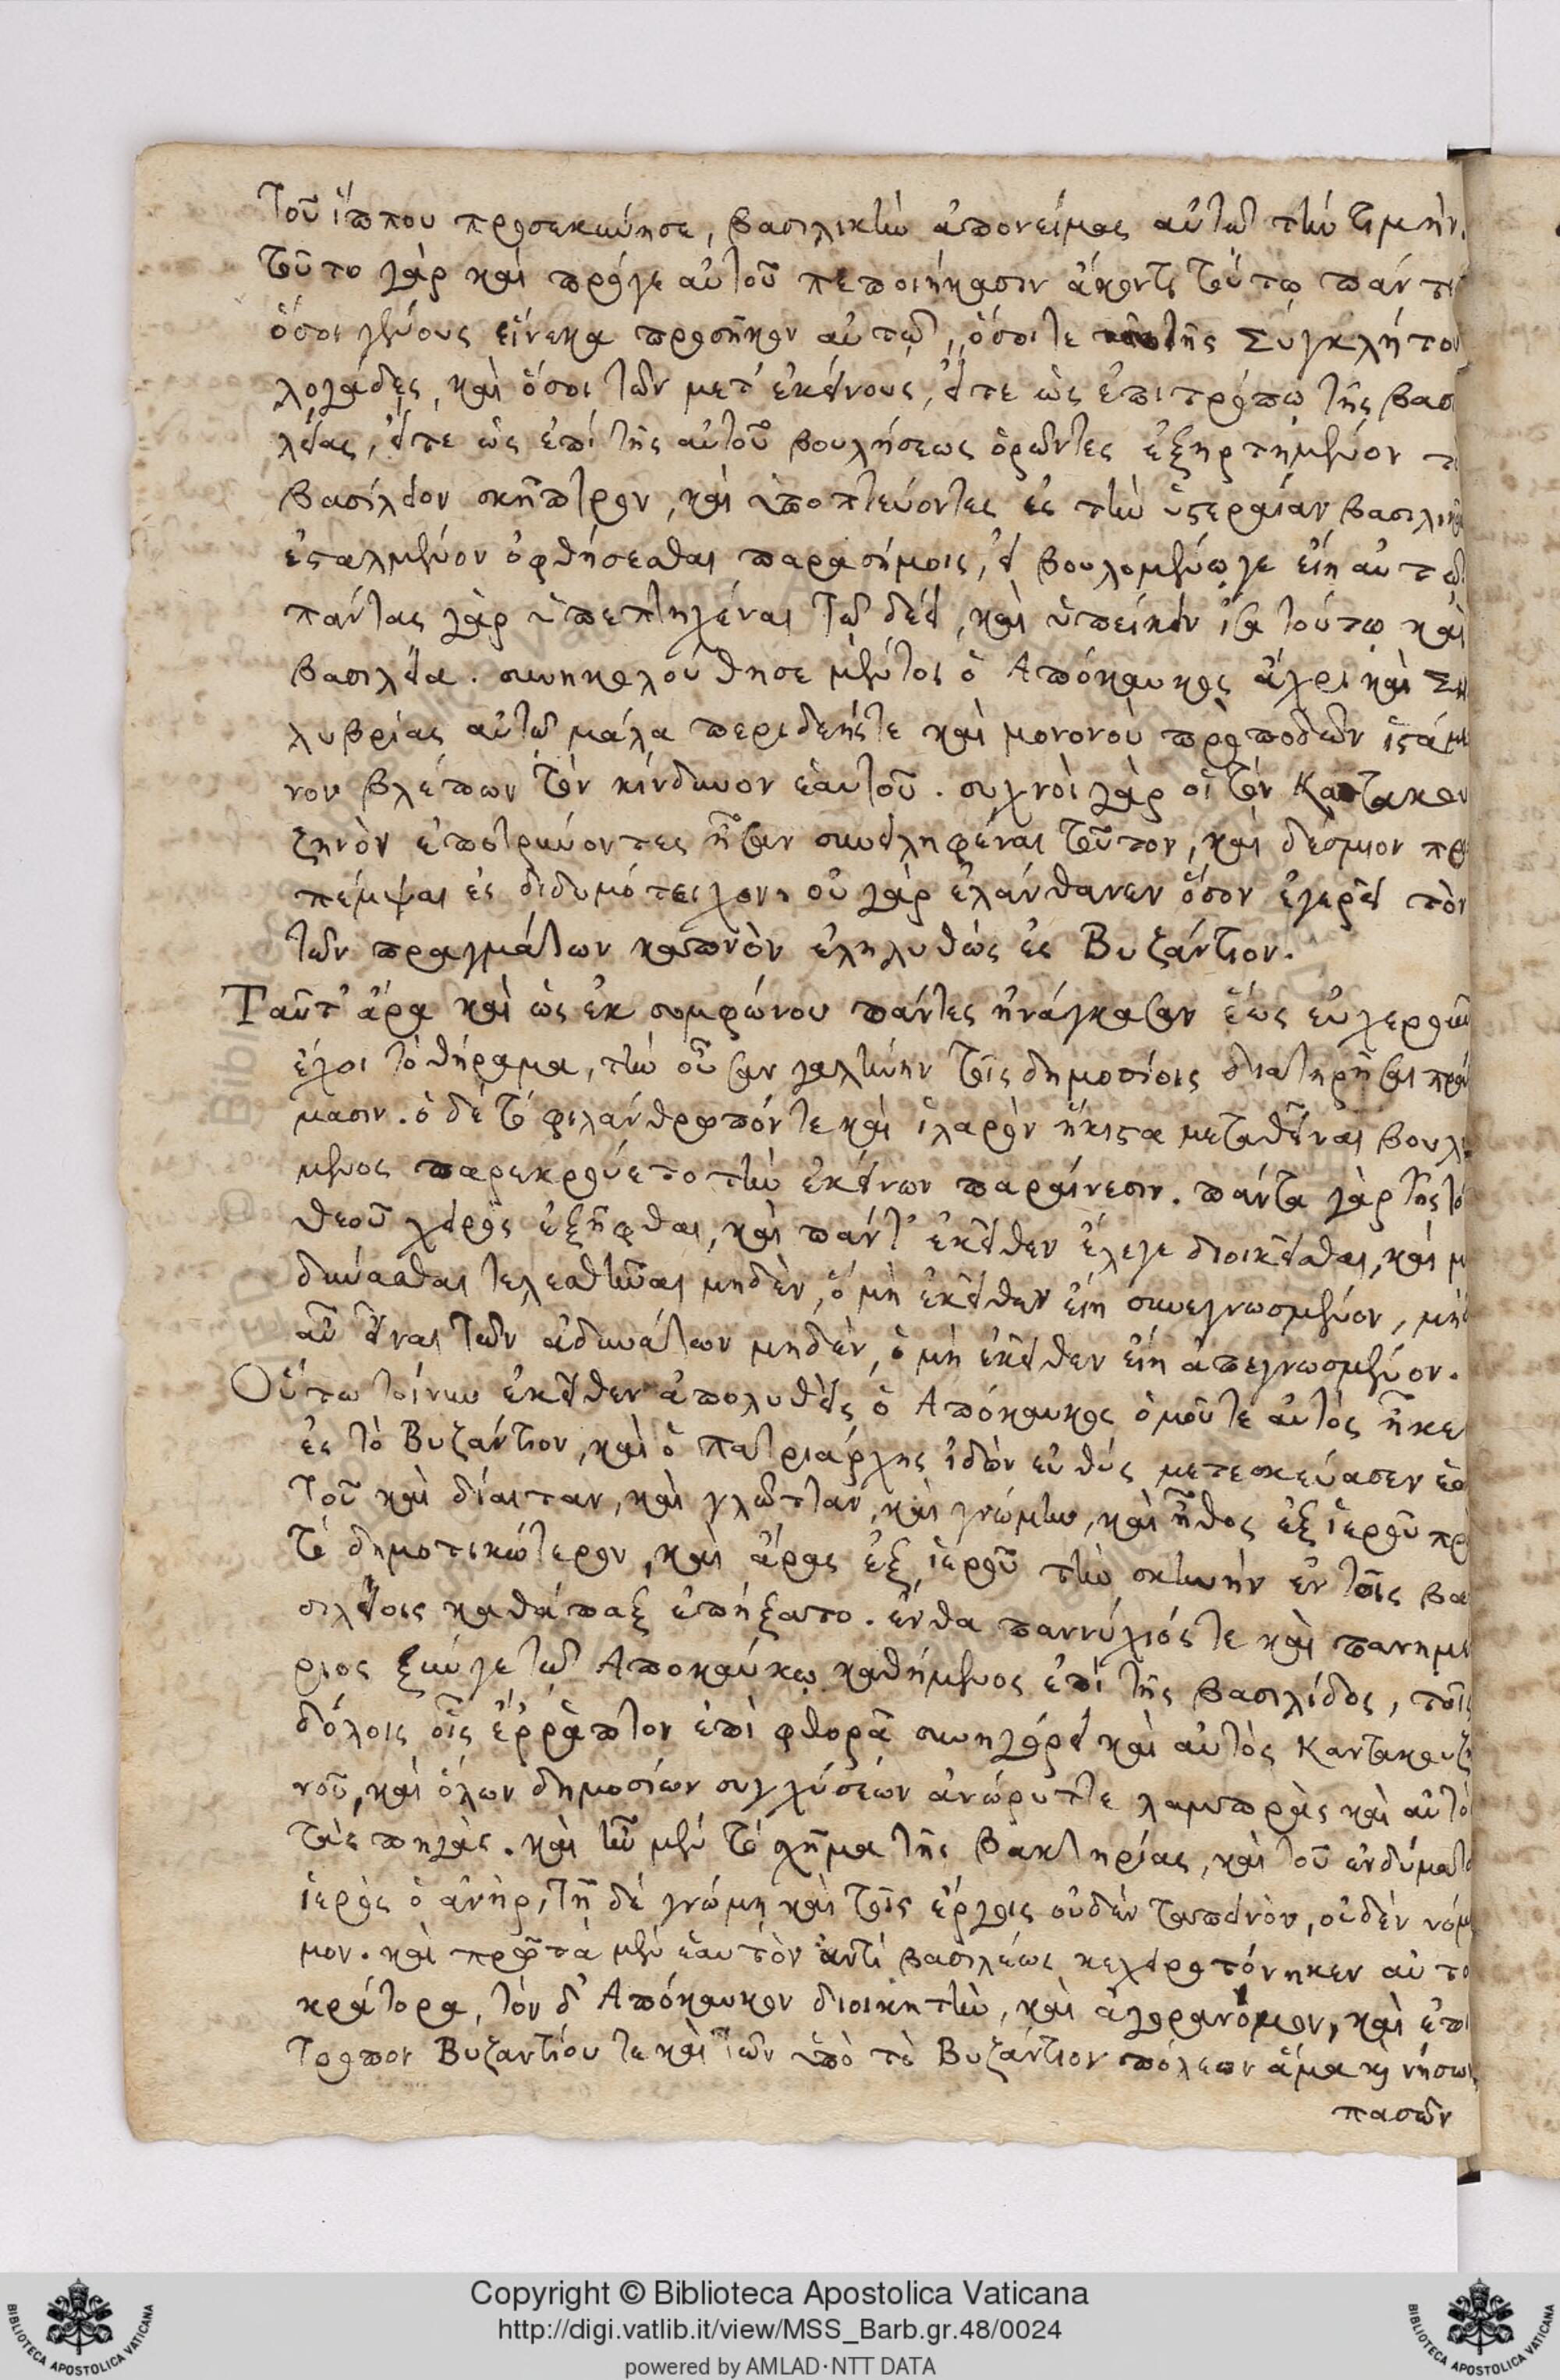 τοῦ ἵππου προσεκύνησε, βασιλικὴν ἀπονείμας αὐτῷ τὴν τιμὴν.
τοῦτο γὰρ καὶ πρό γε αὐτοῦ πεποιήκασιν ἄκοντι τούτῳ πάντε
ὅσοι γένους εἵνεκα προσῆκον αὐτῷ, ὅσοι τε τῆς Συγκλήτου
λογάδες, καὶ ὅσοι τῶν μετ' ἐκείνους, εἴτε ὡς ἐπιτρόπῳ τῆς βασι
λείας, εἴτε ὡς ἐπὶ τῆς αὐτοῦ βουλήσεως ὁρῶντες ἐξηρτημένον τὸ
βασίλειον σκῆπτρον, καὶ ὑποπτεύοντες ἐς τὴν ὑστεραίαν βασιλικοῖ
ἐσταλμένον ὀφθήσεσθαι παρασήμοις, εἰ βουλομένῳ γε εἴη αὐτῷ
πάντας γὰρ ὑπεπτηχέναι τῷ δέει, καὶ ὑπείκειν ἴσα τούτῳ καὶ
βασιλεῖα. συνηκολούθησε μέντοι ὁ Ἀπόκαυκος ἄχρι καὶ Ση
λυβρίας αὐτῷ μάλα περιδεής τε καὶ μονονοὺ πρὸ ποδῶν ἱστάμε
νον βλέπων τὸν κίνδυνον ἑαυτοῦ. συχνοὶ γὰρ οἱ τὸν Καντακου
ζηνὸν ἐποτρύνοντες ἦσαν συνειληφέναι τοῦτον, καὶ δέσμιον προ
πέμψαι ἐς διδυμότειχον, οὐ γὰρ ἐλάνθανεν ὅσον ἐγερεῖ τὸν
τῶν πραγμάτων καπνὸν ἐληλυθὼς ἐς Βυζάντιον.
Ταῦτ' ἄρα καὶ ὡς ἐκ συμφώνου πάντες ἠνάγκασαν ἕως εὐχερῶς
ἔχοι τὸ θήραμα, τὴν οὖσαν γαλήνην τοῖς δημοσίοις διατηρῆσαι πράγ
μασιν. ὁ δὲ τὸ φιλάνθρωπόν τε καὶ ἱλαρὸν ἥκιστα μεταθεῖναι βουλό
μενος παρεκρούετο τὴν ἐκείνων παραίνεσιν. πάντα γὰρ τῆς τοῦ
θεοῦ χειρὸς ἐξῆφθαι, καὶ πάντ' ἐκεῖθεν ἔλεγε διοικεῖσθαι, καὶ μὴ
δύνασθαι τελεσθῆναι μηδὲν, ὃ μὴ ἐκεῖθεν εἴη συνεγνωσμένον, μήτ
αὖ εἶναι τῶν ἀδυνάτων μηδὲν, ὃ μὴ ἐκεῖθεν εἴη ἀπεγνωσμένον.
Οὕτω τοίνυν ἐκεῖθεν ἀπολυθεὶς ὁ Ἀπόκαυκος ὁμοῦ τε αὐτὸς ἧκεν
ἐς τὸ Βυζάντιον, καὶ ὁ πατριάρχης ἰδὼν εὐθὺς μετεσκεύασεν ἑαυ
τοῦ καὶ δίαιταν, καὶ γλῶτταν, καὶ γνώμην, καὶ ἦθος ἐξ ἱεροῦ πρὸς
τὸ δημοτικώτερον, καὶ ἄρας ἐξ ἱεροῦ τὴν σκηνὴν ἐν τοῖς βα
σιλείοις καθάπαξ ἐπήξατο. ἔνθα παννύχιός τε καὶ πανημέ
ριος ξυνῆγε τῷ Ἀποκαύκῳ καθήμενος ἐπὶ τῆς βασιλίδος, τοῖς
δόλοις οἷς ἔῤῥαπτον ἐπὶ φθορᾷ συνηγόρει καὶ αὐτὸς Καντακουζη
νοῦ, καὶ ὅλων δημοσίων συγχύσεων ἀνώρυττε λαμπρὰς καὶ αὐτὸς
τὰς πηγὰς. καὶ ἦν μὲν τὸ σχῆμα τῆς βακτηρίας, καὶ τοῦ ἐνδύματο
ἱερὸς ὁ ἀνὴρ, τῇ δὲ γνώμῃ καὶ τοῖς ἔργοις οὐδὲν ταπεινὸν, οὐδὲν νόμι
μον. καὶ πρῶτα μὲν ἑαυτὸν ἀντὶ βασιλέως κεχειροτόνηκεν αὐτο
κράτορα, τὸν δ' Ἀπόκαυκον διοικητὴν, καὶ ἀγορανόμον, καὶ ἐπί
τροπον Βυζαντίου τε καὶ τῶν ὑπὸ τὸ Βυζάντιον πόλεων ἅμα καὶ νήσων
πασῶν
Copyright © Biblioteca Apostolica Vaticana
http://digi.vatlib.it/view/MSS_Barb.gr.48/0024
powered by AMLAD·NTT DATA
BIBLIOTECA APOSTOLICA VATICANA
BIBLIOTECA APOSTOLICA VATICANA